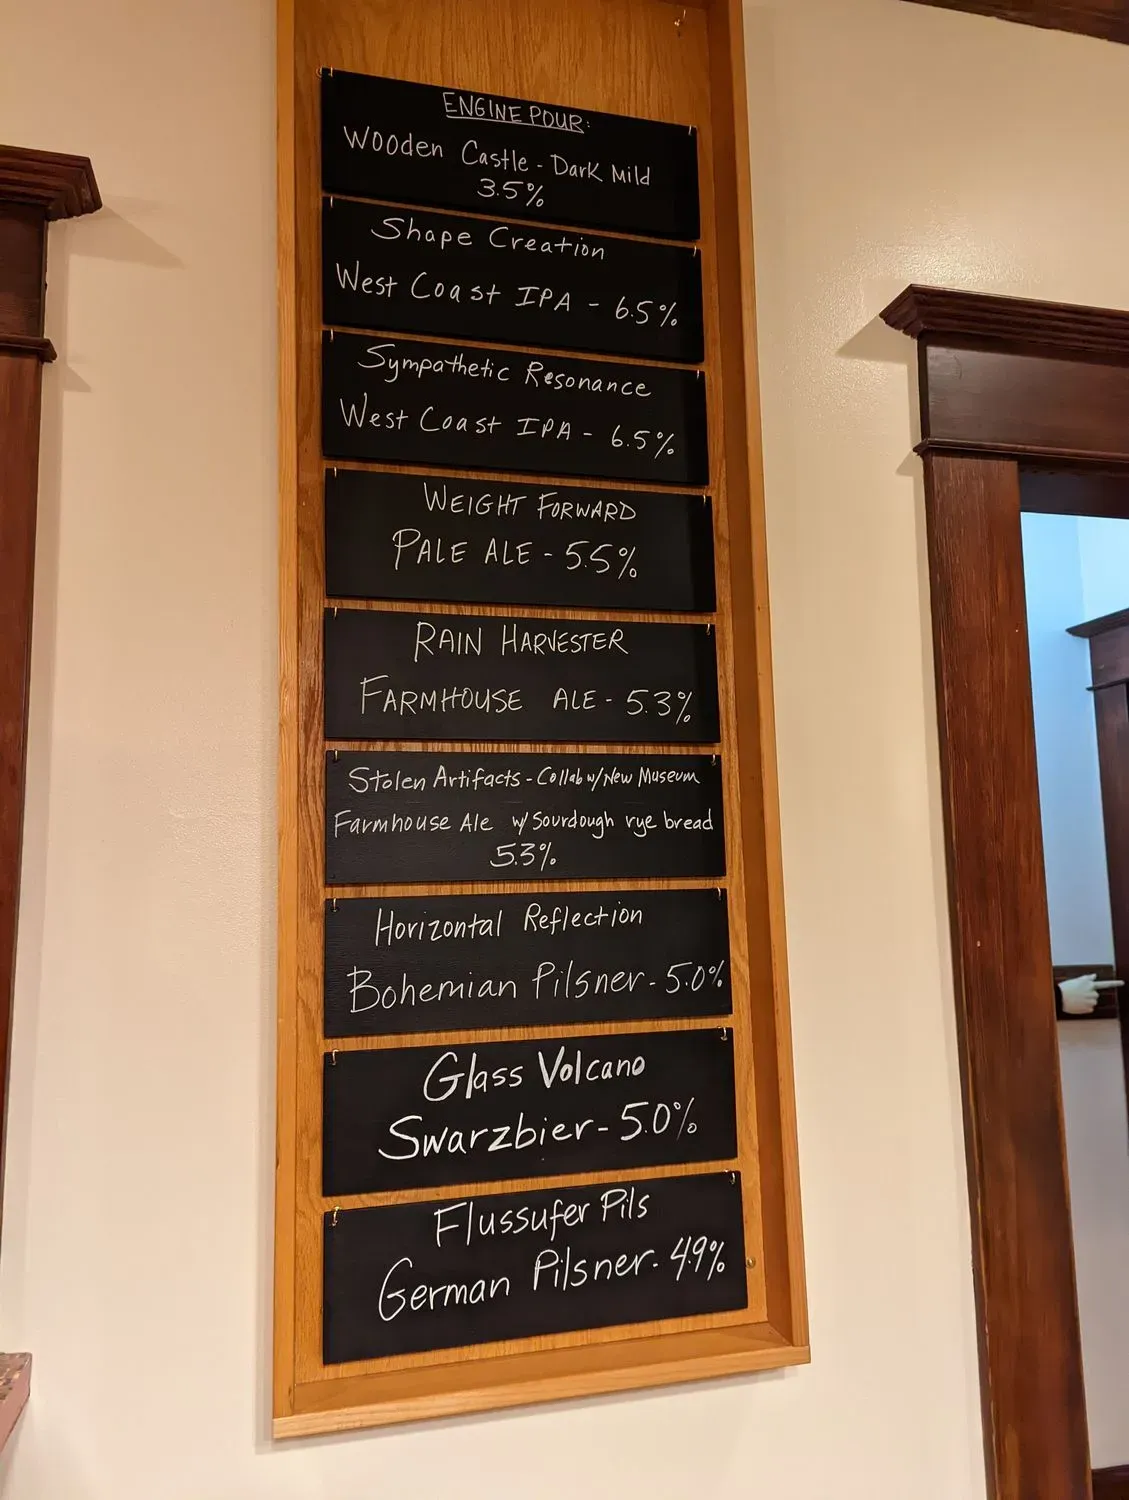 ENGINE POUR:
Wooden Castle - Dark Mild
3.5%
Shape Creation
West Coast IPA - 6.5%
Sympathetic Resonance
West Coast IPA - 6.5%
WEIGHT FORWARD
PALE ALE - 5.5%
RAIN HARVESTER
FARMHOUSE ALE - 5.3%
Stolen Artifacts - Collab w/ New Museum
Farmhouse Ale w/ Sourdough rye bread
5.3%
Horizontal Reflection
Bohemian Pilsner - 5.0%
Glass Volcano
Swarzbier - 5.0%
Flussufer Pils
German Pilsner - 4.9%